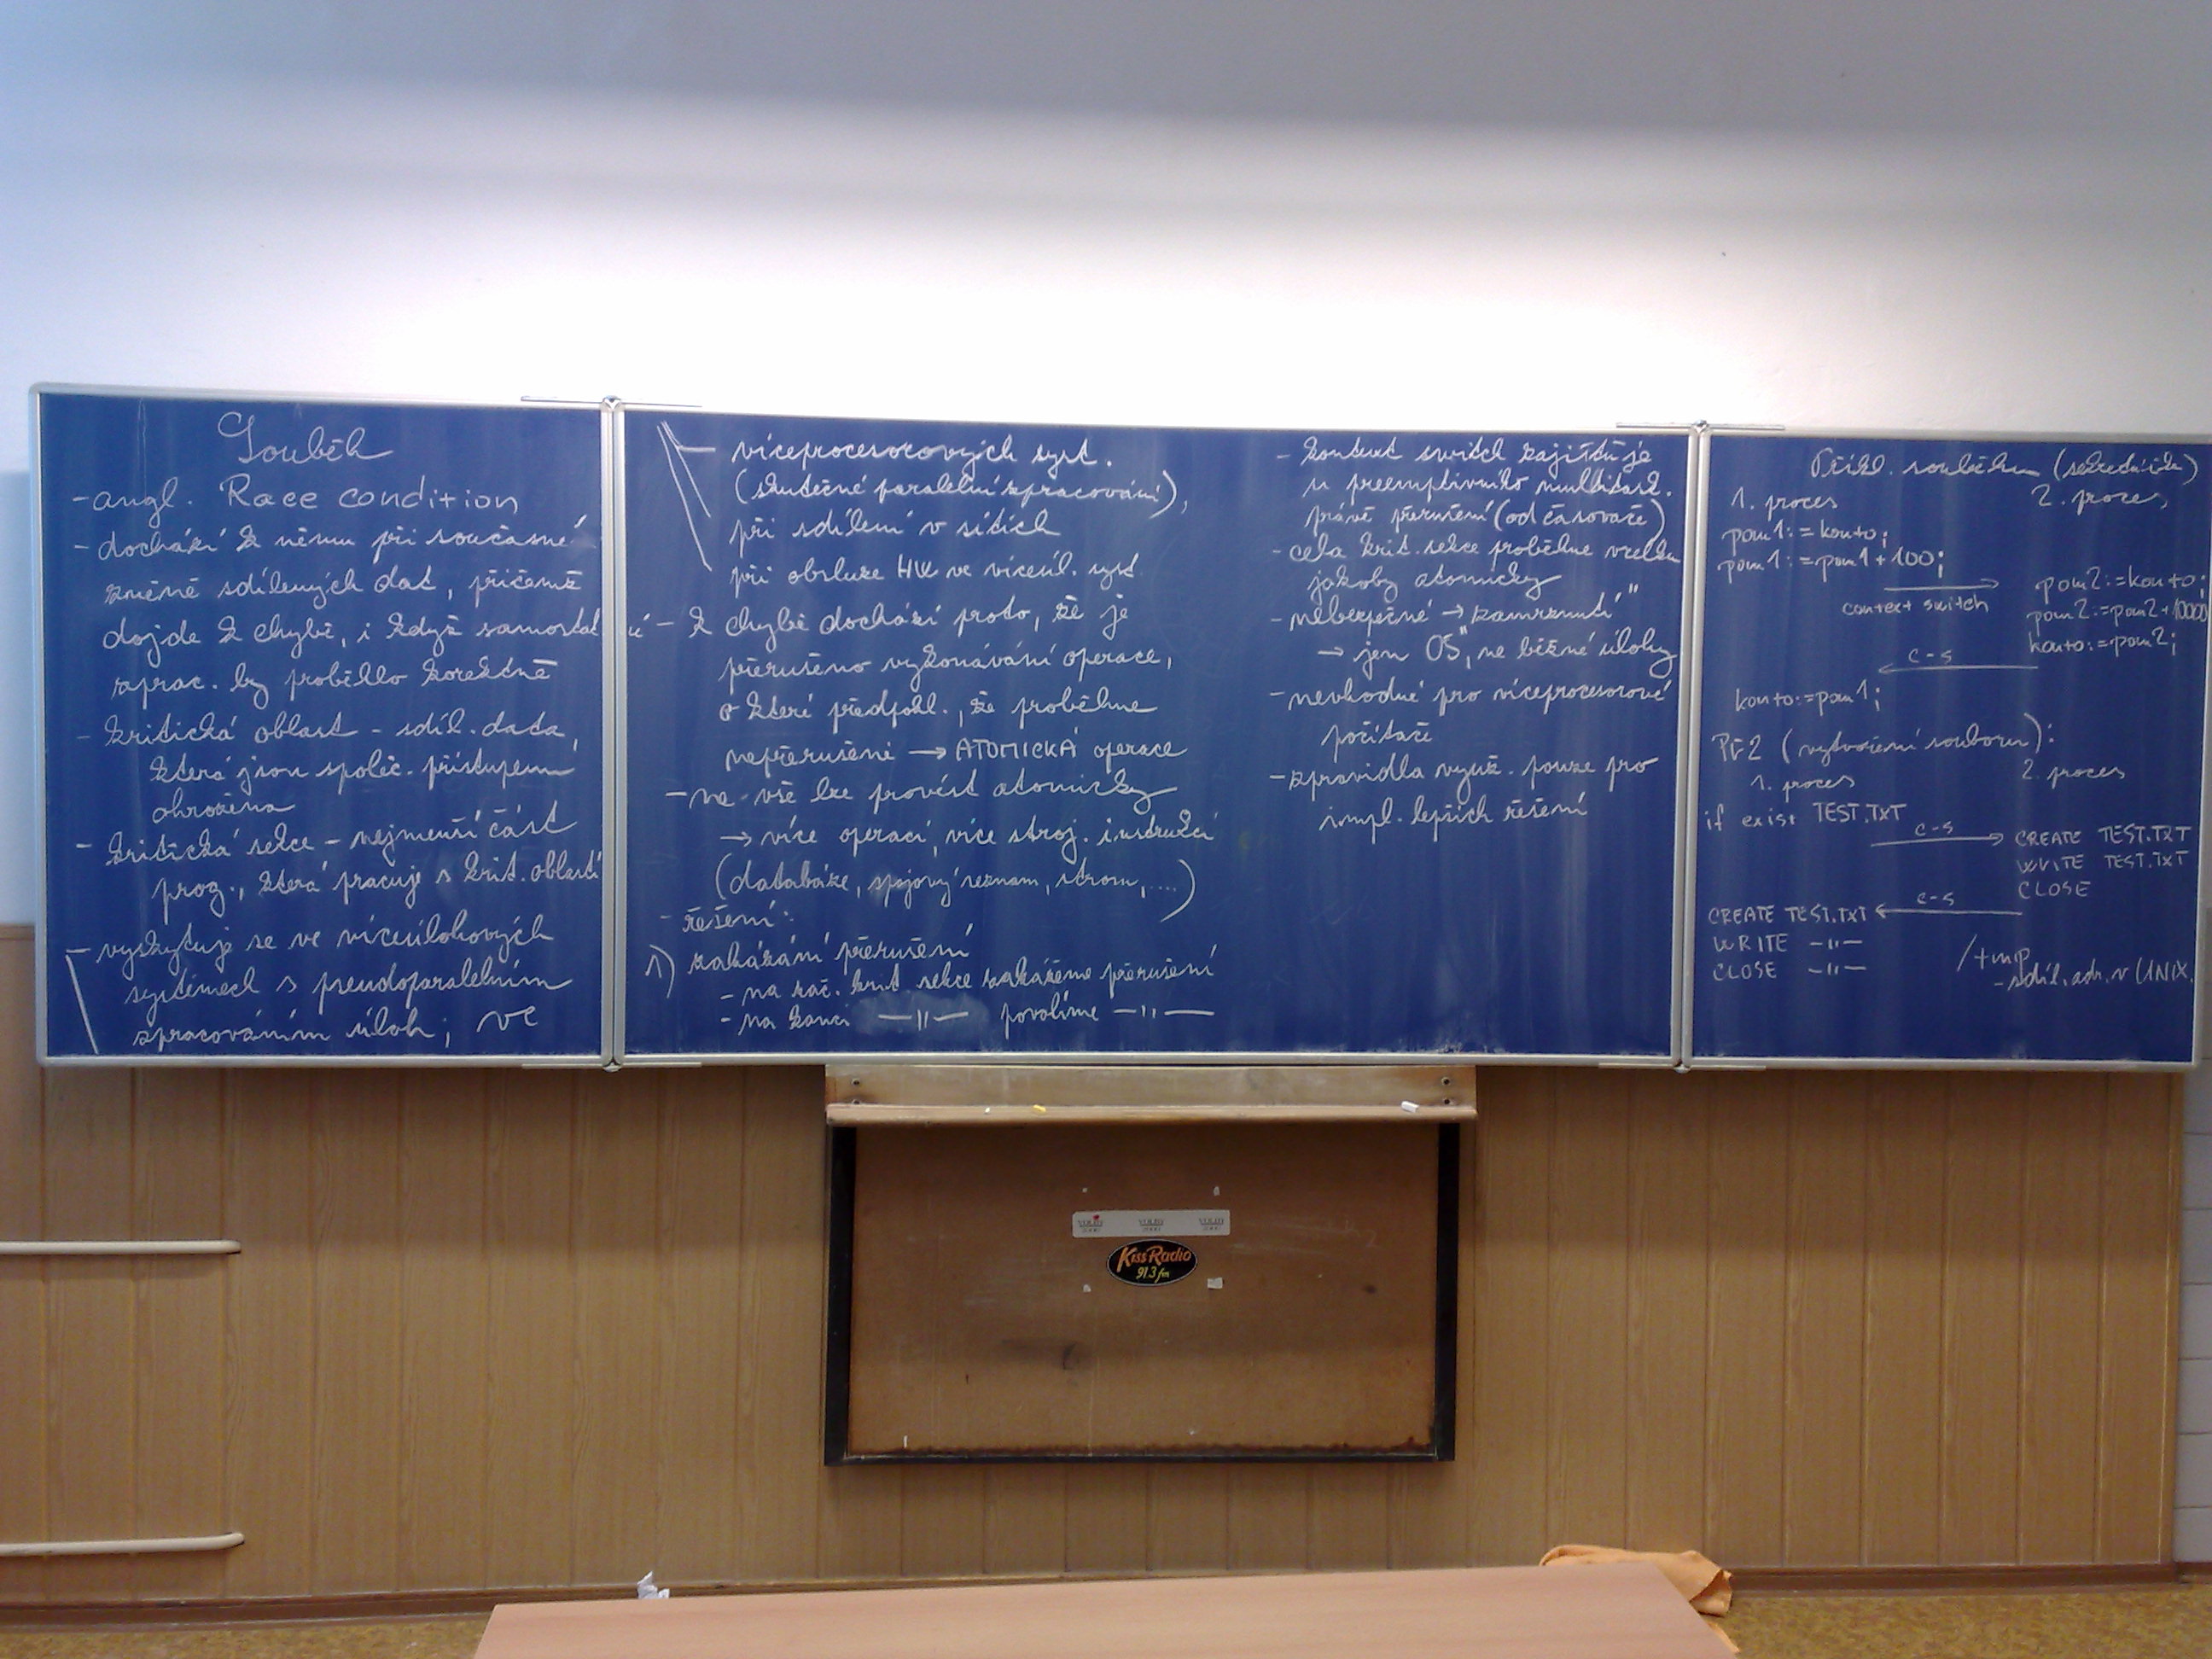 Souběh
- angl. Race condition
- dochází k němu při současné
změně sdílených dat, přičemž
dojde k chybě, i když samostatné
zprac. by proběhlo korektně
- kritická oblast - sdíl. data,
která jsou společ. přístupem
ohrožena
- kritická sekce - nejmenší část
prog., která pracuje s krit. oblastí
- vyskytuje se ve víceúlohových
systémech s pseudoparalelním
zpracováním úloh, ve
víceprocesorových syst.
(skutečné paralelní zpracování),
při sdílení v sítích
při obsluze HW ve víceúl. syst.
- k chybě dochází proto, že je
přerušeno vykonávání operace,
o které předpokl., že proběhne
nepřerušeně → ATOMICKÁ operace
- ne vše lze provést atomicky
→ více operací, více stroj. instrukcí
(databáze, spojový seznam, strom, ....)
- řešení:
1) zakázání přerušení
- na zač. krit. sekce zakážeme přerušení
- na konci —"— povolíme —"—
- context switch zajišťuje
u preemptivního multitask.
právě přerušení (od časovače)
- celá krit. sekce proběhne vcelku
jakoby atomicky
- nebezpečné → "zamrznutí"
→ jen OS, ne běžné úlohy
- nevhodné pro víceprocesorové
počítače
- zpravidla využ. pouze pro
impl. lepších řešení
Příkl. souběhu
1. proces 2. proces
pom1:=konto;
pom1:=pom1+100;
context switch
pom2:=konto;
pom2:=pom2+1000;
konto:=pom2;
c-s
konto:=pom1;
Př2 (vytvoření souboru):
1. proces 2. proces
if exist TEST.TXT
c-s
CREATE TEST.TXT
WRITE TEST.TXT
CLOSE
c-s
CREATE TEST.TXT
WRITE —"—
CLOSE —"—
/tmp
- sdíl. adr. v UNIX.
Kiss Radio
91.3 fm